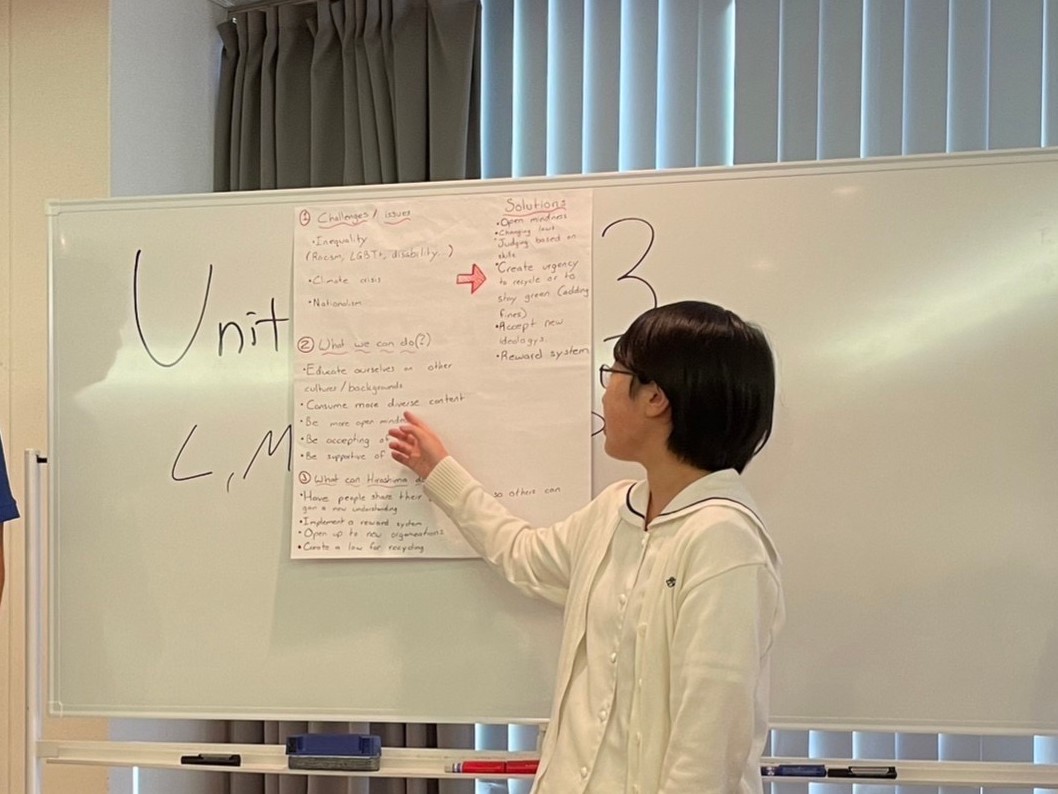 Unit
3
L, M
① Challenges / issues
• Inequality
(Racism, LGBT+, disability...)
• Climate crisis
• Nationalism
② What we can do(?)
• Educate ourselves on other
cultures / backgrounds
• Consume more diverse content
• Be more open
• Be accepting of
• Be supportive of
③ What can Hiroshima
• Have people share their
so others can
gain a new understanding
• Implement a reward system
• Open up to new organizations
• Create a law for recycling
Solutions
• Open mindness
• Changing laws
• Judging based on
skills
• Create urgency
to recycle or to
stay green (adding
fines)
• Accept new
ideologys
• Reward system